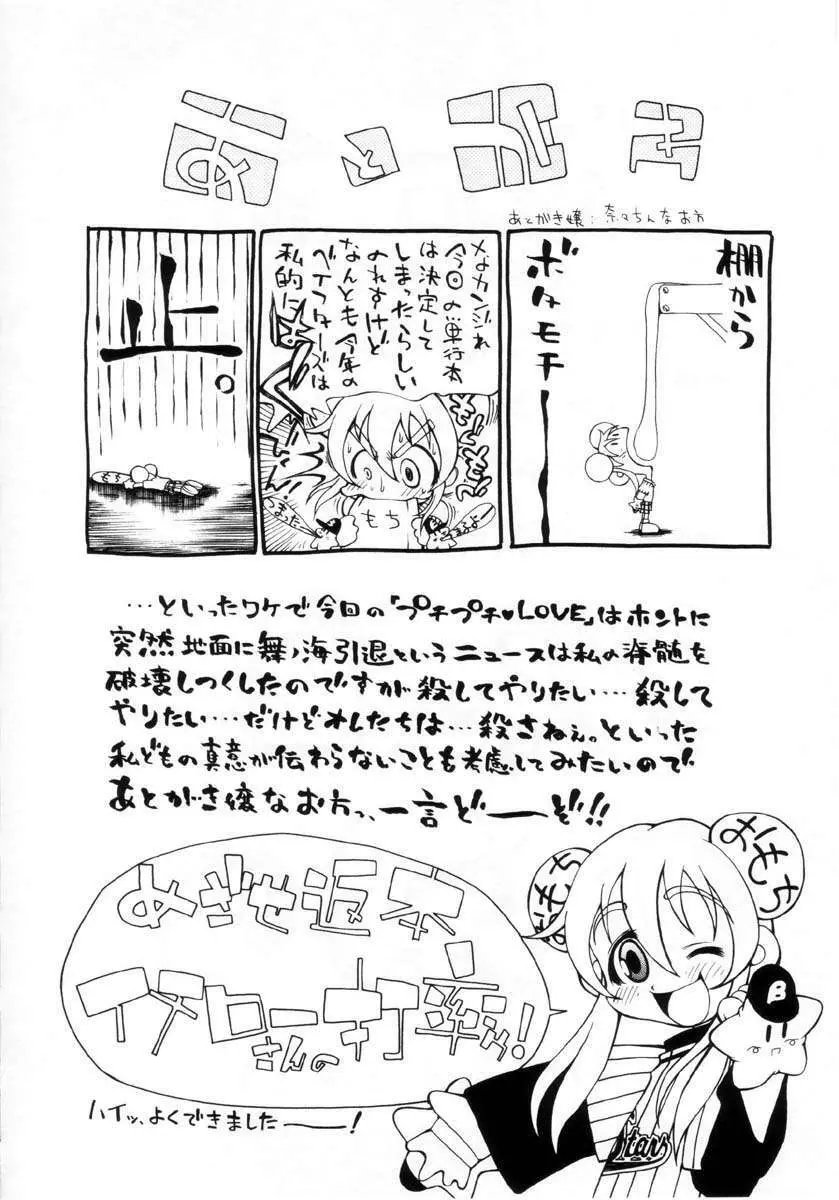 あとがき
あとがき嬢:奈々ちんなお方
棚から
ボタモチーー
なカンジれ
今回の単行本
は決定して
しまったらしい
のれすけど
なんとも今年の
ベイスターズは
私的に
もち
止。
もち
…といったワケで今回の「プチプチ♥LOVE」はホントに
突然地面に舞ノ海引退というニュースは私の脊髄を
破壊しつくしたのですが殺してやりたい…殺して
やりたい…だけどオレたちは…殺さねぇ。といった
私どもの真意が伝わらないことも考慮してみたいので
あとがき嬢なお方っ、一言どーーぞ!!
おもち
おもち
めざせ返本
イチローさんの打率わり!
B
Stars
ハイッ、よくできましたーー!